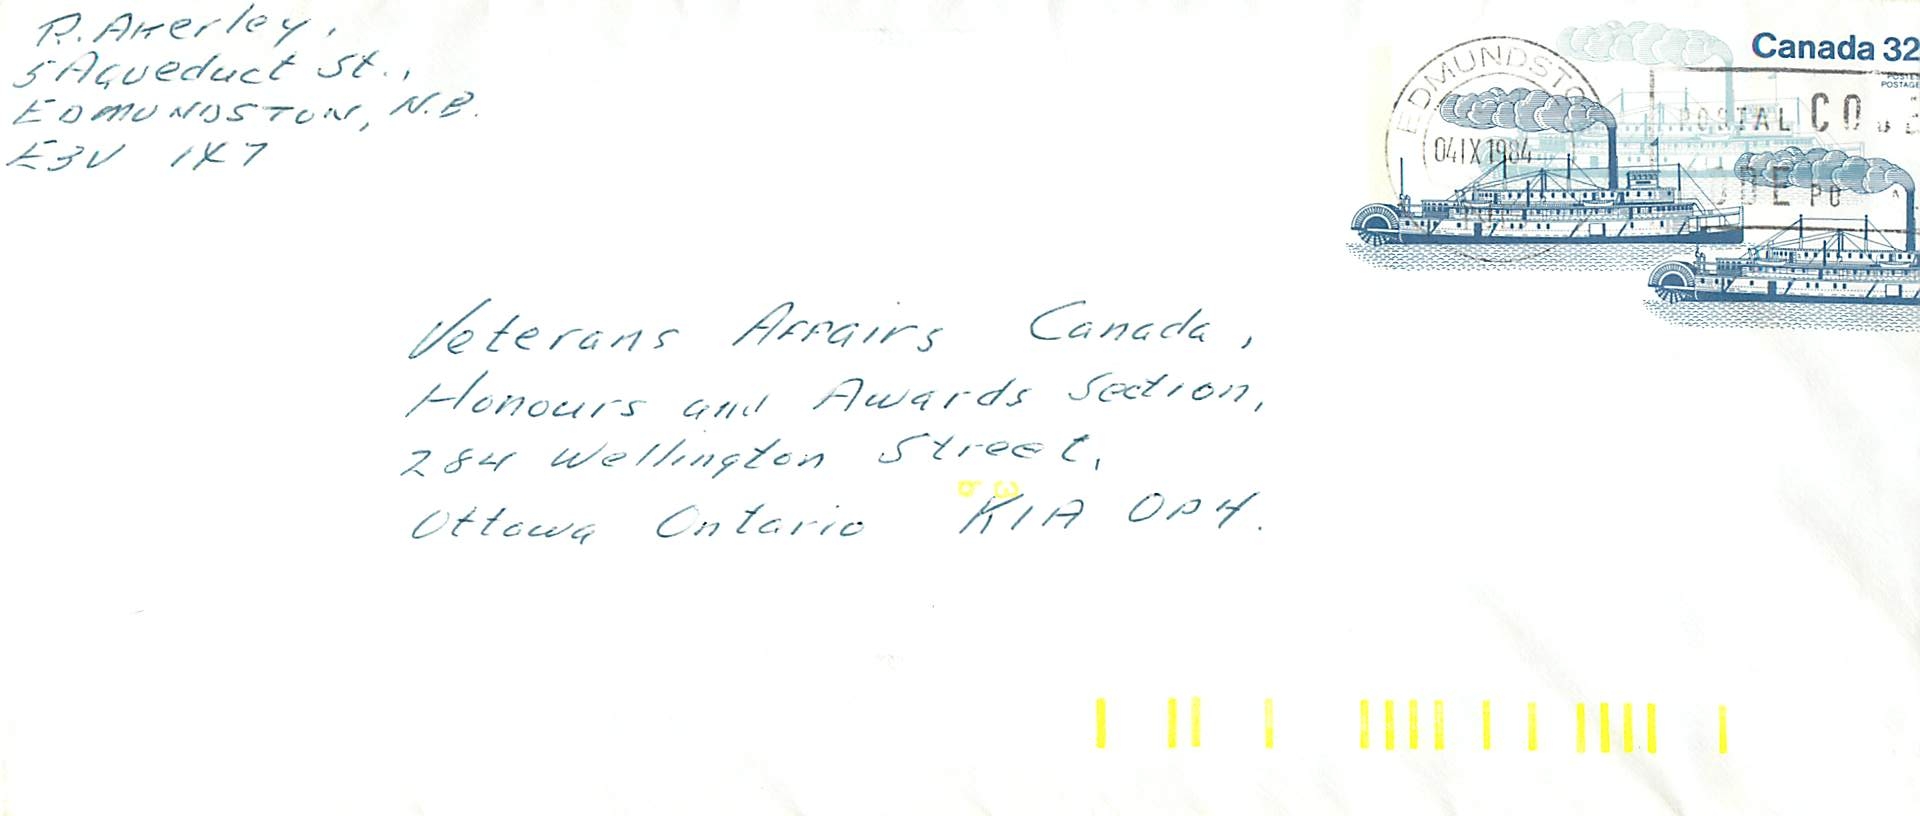 R. Akerley,
5 Aqueduct St.,
EDMUNDSTON, N.B.
E3V 1K7
Canada 32
POSTES
POSTAGE
EDMUNDSTO
04 IX 1984
POSTAL CO
ODE PO
Veterans Affairs Canada,
Honours and Awards Section,
284 Wellington Street,
Ottawa Ontario K1A 0P4.